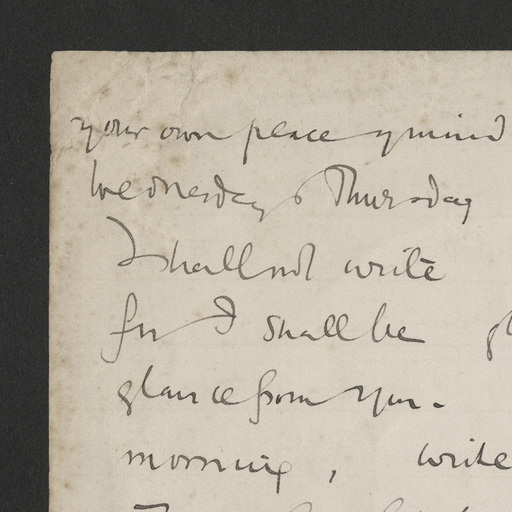 your own peace of mind
Wednesday & Thursday
I shall not write
for I shall be
glance from you.
morning, write